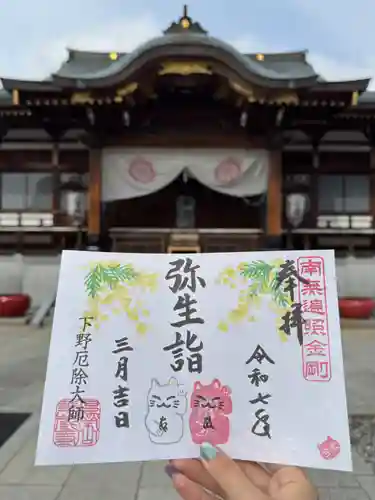 南無遍照金剛
奉拝
令和七年
弥生詣
三月吉日
下野厄除大師